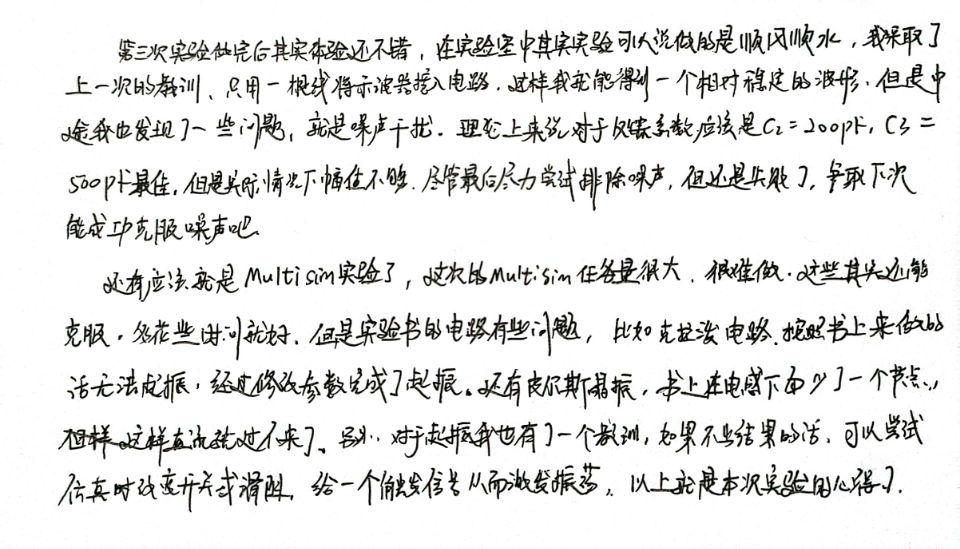 第三次实验做完后其实体验还不错，在实验室中其实实验可以说做的是顺风顺水，我采取了
上一次的教训，只用一根线将示波器接入电路，这样我就能得到一个相对稳定的波形，但是中
途我也发现了一些问题，就是噪声干扰。理论上来说对于反馈系数应该是C2=200pF，C3=
500pF最佳，但是实际情况下幅值不够，尽管最后尽力尝试排除噪声，但还是失败了，争取下次
能成功克服噪声吧。
还有应该就是Multisim实验了，这次的Multisim任务量很大，很难做。这些其实还能
克服，多花些时间就好，但是实验书的电路有些问题，比如克拉泼电路，按照书上来做的
话无法起振，经过修改参数完成了起振。还有皮尔斯晶振，书上在电感下面少了一个节点，
这样直流就过不来了。另外，对于起振我也有了一个教训，如果不出结果的话，可以尝试
仿真时改变开关或滑阻，给一个触发信号从而激发振荡。以上就是本次实验的心得了。